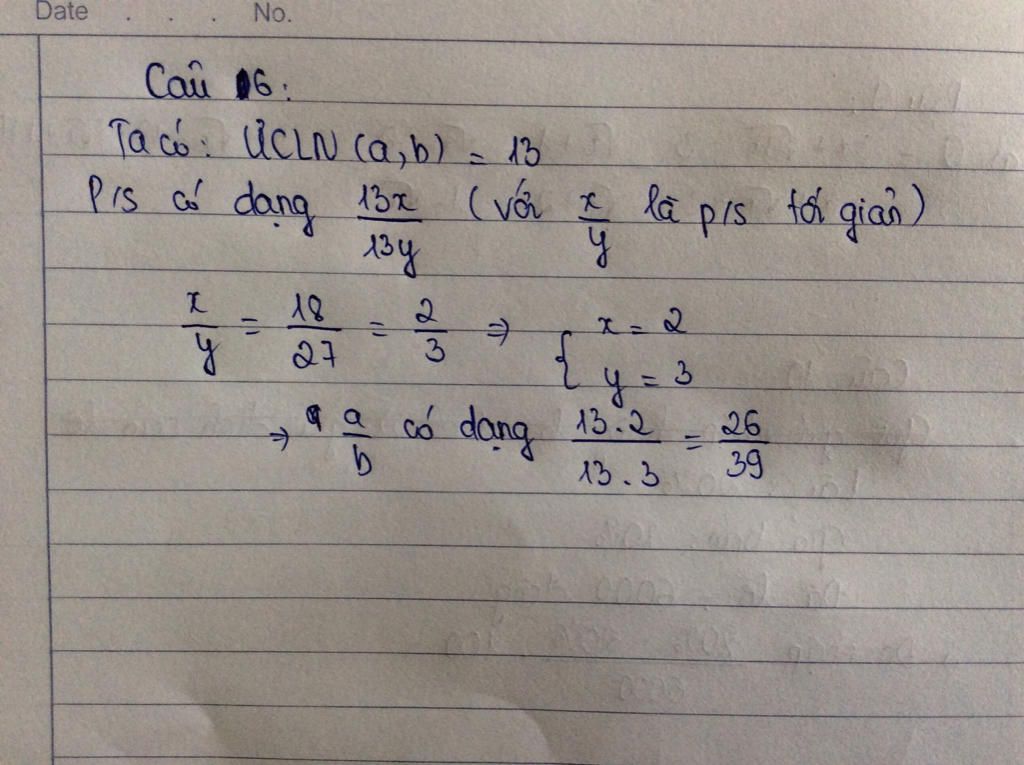 Date . . . No.
Câu 16:
Ta có: ƯCLN (a,b) = 13
P/S có dạng 13x/13y (với x/y là p/s tối giản)
x/y = 18/27 = 2/3 => { x = 2
y = 3
=> a/b có dạng 13.2/13.3 = 26/39